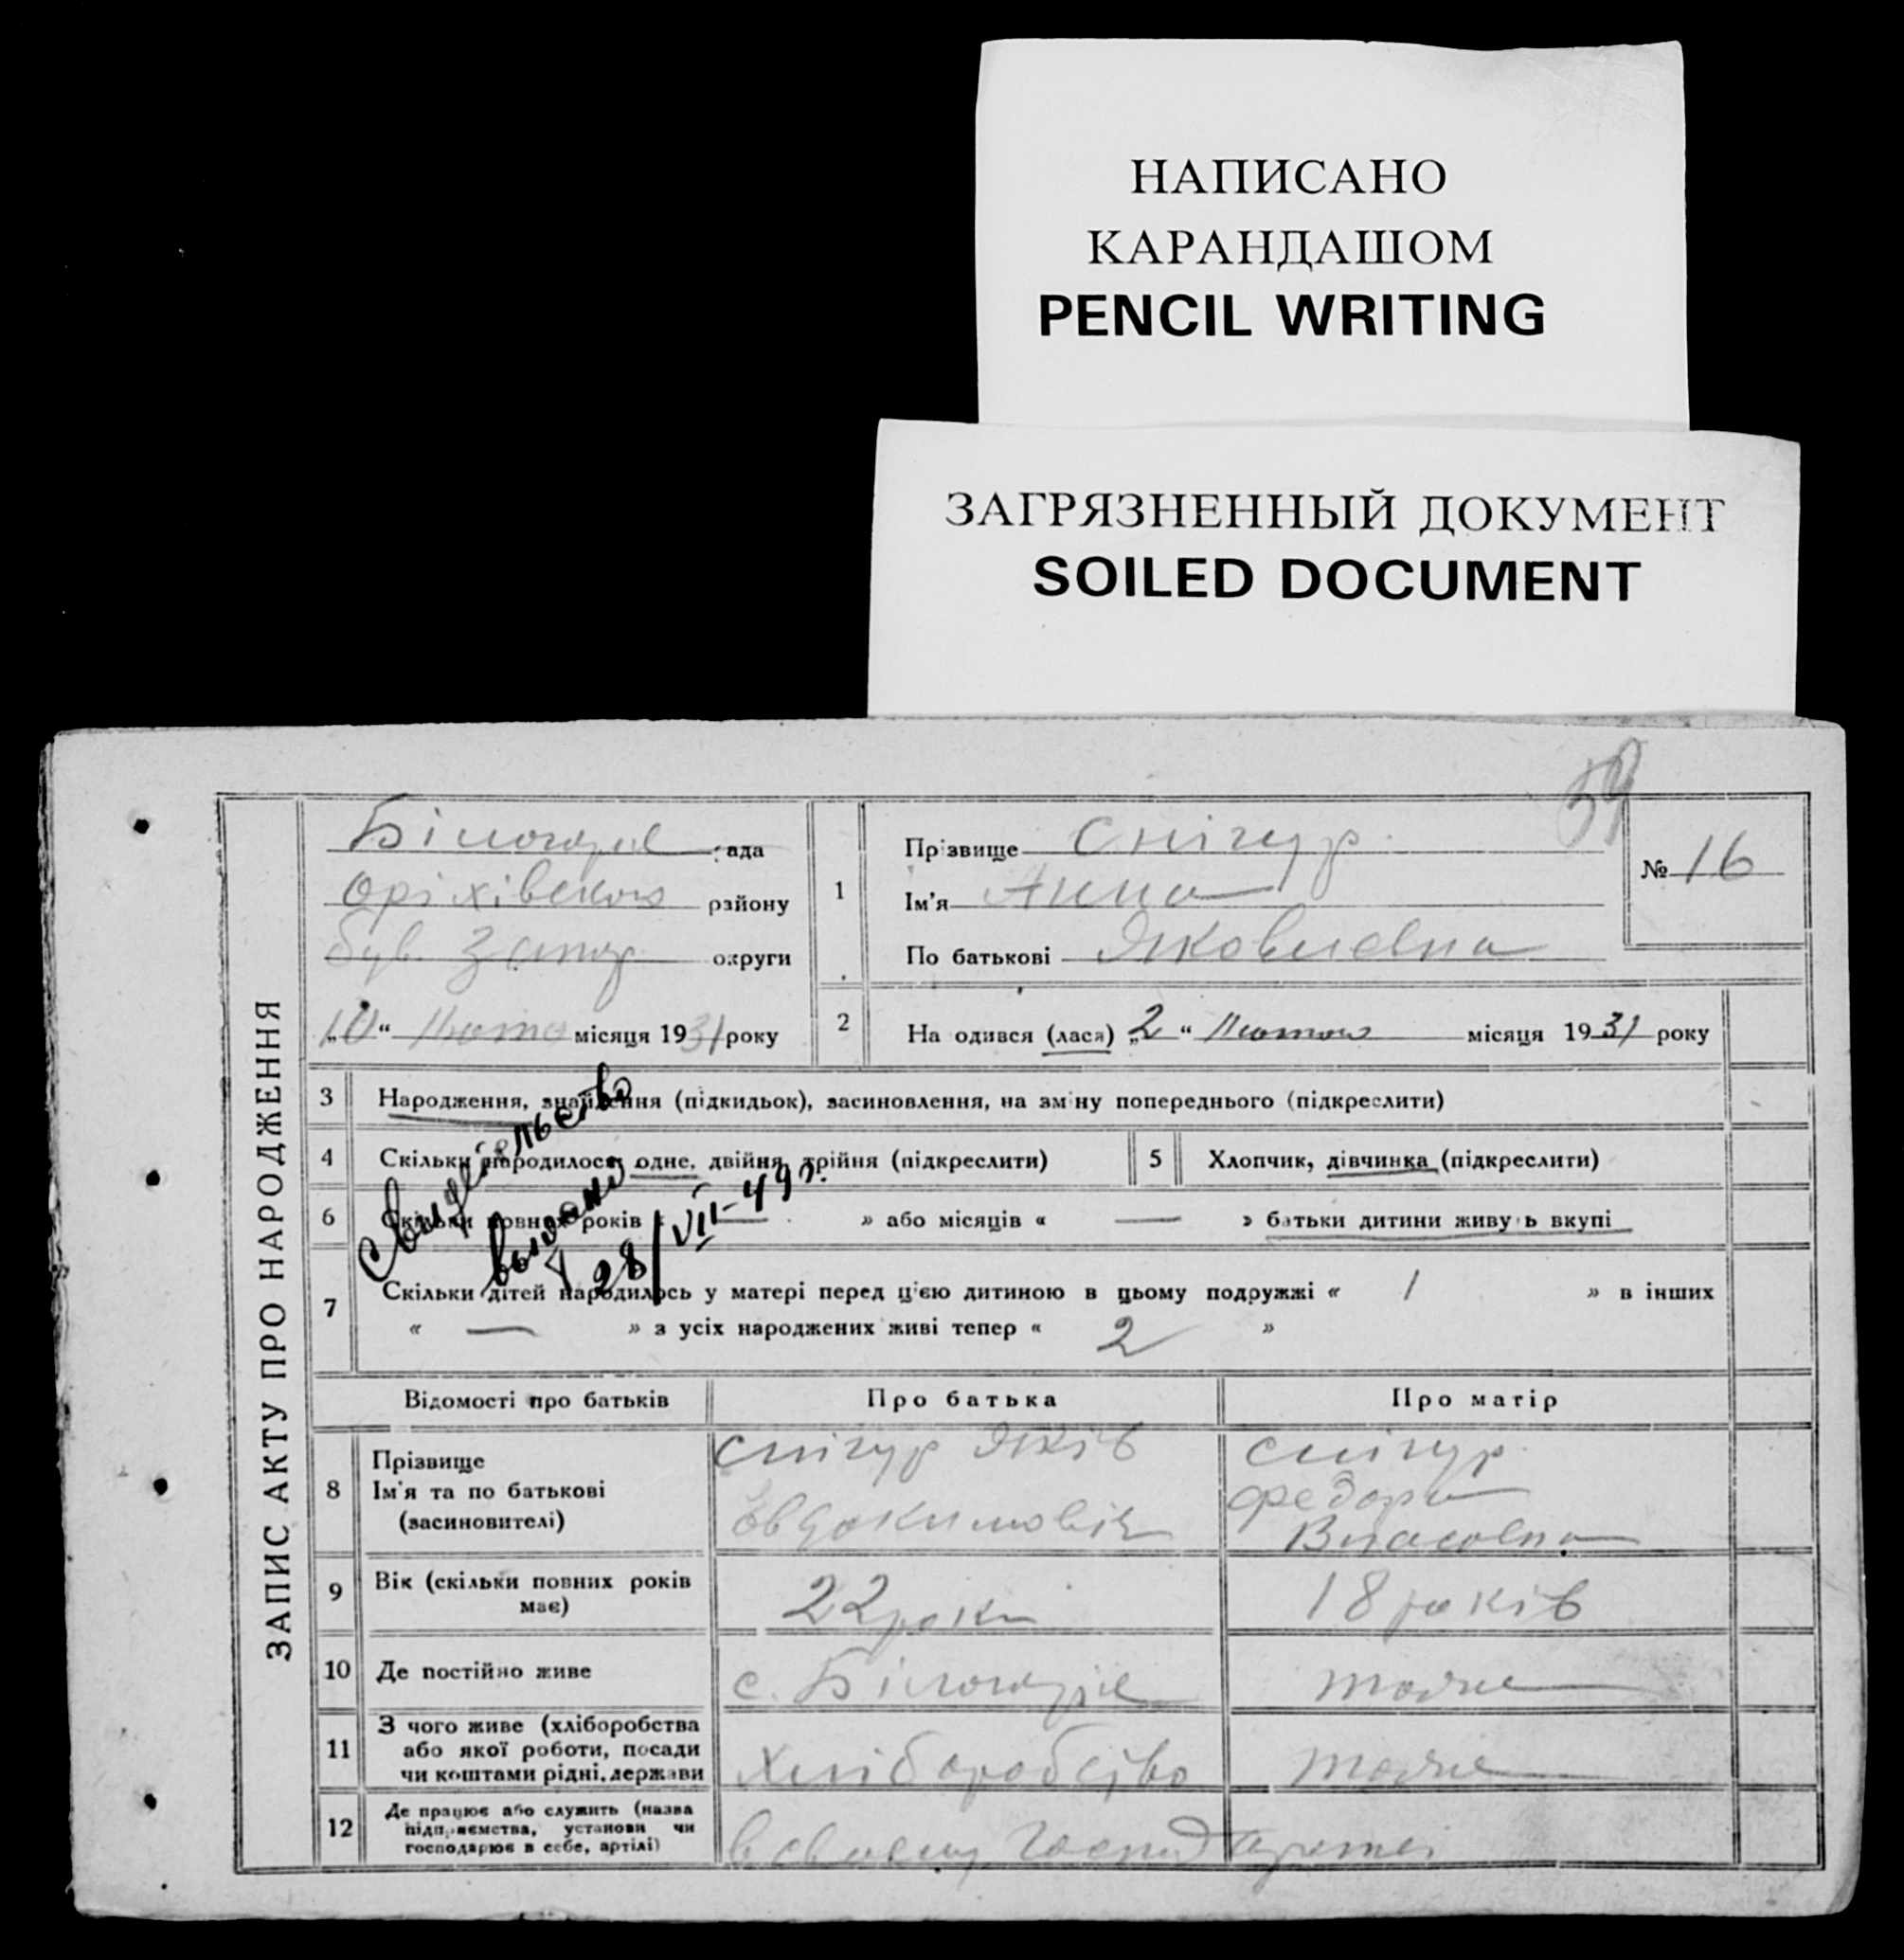 НАПИСАНО
КАРАНДАШОМ
PENCIL WRITING
ЗАГРЯЗНЕННЫЙ ДОКУМЕНТ
SOILED DOCUMENT
59
ЗАПИС АКТУ ПРО НАРОДЖЕННЯ
Білогірʼє рада
Оріхівського району
був. Запор. округи
„10“ Лютого місяця 1931 року
1
Прізвище Снігур
Ім'я Анна
По батькові Яковлевна
№ 16
2 На одився (лася) „2“ Лютого місяця 1931 року
3 Народження, знайдення (підкидьок), засиновлення, на зміну попереднього (підкреслити)
4 Скільки народилося: одне, двійня, трійня (підкреслити)
5 Хлопчик, дівчинка (підкреслити)
6 Скільки повних років « — » або місяців « — » батьки дитини живуть вкупі
Свидетельство
выдано
28/VII-49 г.
7 Скільки дітей народилось у матері перед цією дитиною в цьому подружжі « 1 » в інших
« — » з усіх народжених живі тепер « 2 »
Відомості про батьків Про батька Про матір
8 Прізвище
Ім'я та по батькові
(засиновителі)
Снігур Яків
Евдокимовіч
Снігур
Федора
Власовна
9 Вік (скільки повних років
має)
22 роки
18 років
10 Де постійно живе
с. Білогірʼє
тоже
11 З чого живе (хліборобства
або якої роботи, посади
чи коштами рідні, держави
Хліборобство
тоже
12 Де працює або служить (назва
підприємства, установи чи
господарює в себе, артілі)
в своєму